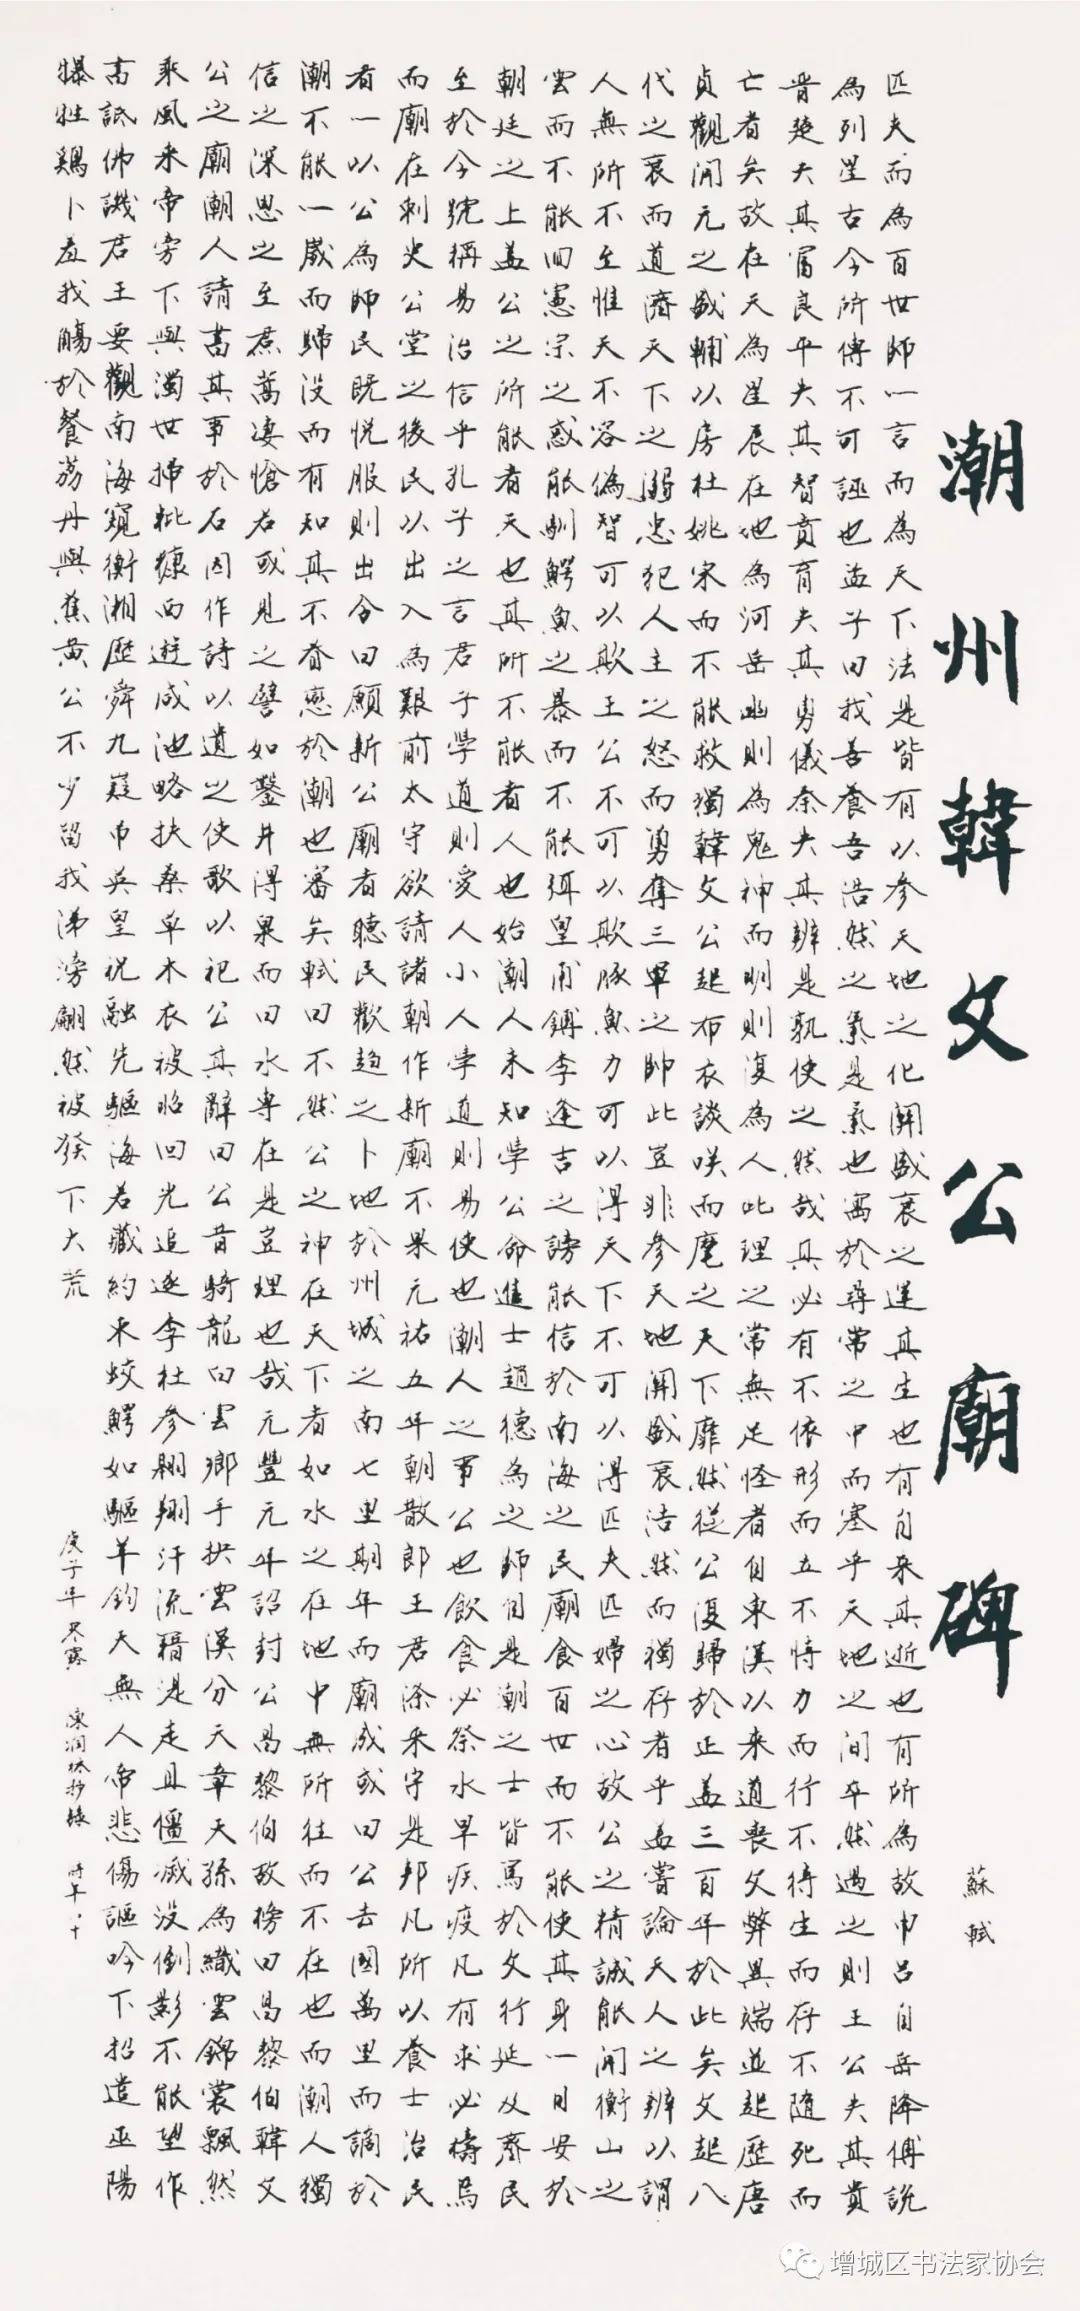 潮州韓文公廟碑
蘇軾
匹夫而為百世師一言而為天下法是皆有以參天地之化關盛衰之運其生也有自來其逝也有所為故申呂自岳降傅說
為列星古今所傳不可誣也孟子曰我善養吾浩然之氣是氣也寓於尋常之中而塞乎天地之間卒然遇之則王公失其貴
晉楚失其富良平失其智賁育失其勇儀秦失其辨是孰使之然哉其必有不依形而立不恃力而行不待生而存不隨死而
亡者矣故在天為星辰在地為河岳幽則為鬼神而明則復為人此理之常無足怪者自東漢以來道喪文弊異端並起歷唐
貞觀開元之盛輔以房杜姚宋而不能救獨韓文公起布衣談咲而麾之天下靡然從公復歸於正蓋三百年於此矣文起八
代之衰而道濟天下之溺忠犯人主之怒而勇奪三軍之帥此豈非參天地關盛衰浩然而獨存者乎蓋嘗論天人之辨以謂
人無所不至惟天不容偽智可以欺王公不可以欺豚魚力可以得天下不可以得匹夫匹婦之心故公之精誠能開衡山之
雲而不能回憲宗之惑能馴鱷魚之暴而不能弭皇甫鎛李逢吉之謗能信於南海之民廟食百世而不能使其身一日安於
朝廷之上蓋公之所能者天也其所不能者人也始潮人未知學公命進士趙德為之師自是潮之士皆篤於文行延及齊民
至於今號稱易治信乎孔子之言君子學道則愛人小人學道則易使也潮人之事公也飲食必祭水旱疾疫凡有求必禱焉
而廟在刺史公堂之後民以出入為艱前太守欲請諸朝作新廟不果元祐五年朝散郎王君滌來守是邦凡所以養士治民
者一以公為師民既悅服則出令曰願新公廟者聽民歡趨之卜地於州城之南七里期年而廟成或曰公去國萬里而謫於
潮不能一歲而歸沒而有知其不眷戀於潮也審矣軾曰不然公之神在天下者如水之在地中無所往而不在也而潮人獨
信之深思之至焄蒿凄愴若或見之譬如鑿井得泉而曰水專在是豈理也哉元豐元年詔封公昌黎伯故榜曰昌黎伯韓文
公之廟潮人請書其事於石因作詩以遺之使歌以祀公其辭曰公昔騎龍白雲鄉手抉雲漢分天章天孫為織雲錦裳飄然
乘風來帝旁下與濁世掃粃糠西遊咸池略扶桑草木衣被昭回光追逐李杜參翱翔汗流籍湜走且僵滅沒倒影不能望作
書詆佛譏君王要觀南海窺衡湘歷舜九嶷弔英皇祝融先驅海若藏約束蛟鱷如驅羊鈞天無人帝悲傷謳吟下招遣巫陽
犦牲鷄卜羞我觴於餐荔丹與蕉黃公不少留我涕滂翩然被髮下大荒
庚子年寒露 陳潤林抄錄 時年八十
增城区书法家协会